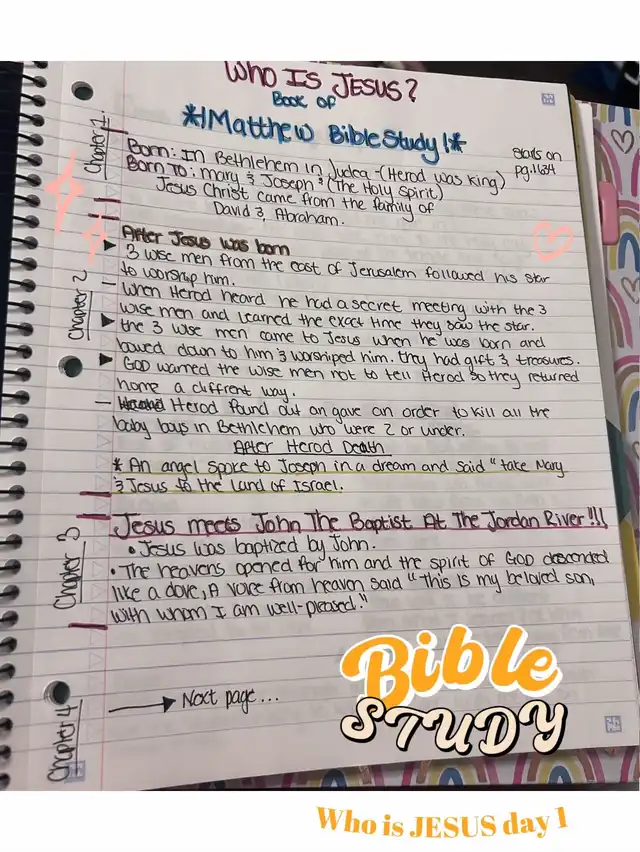 WHO IS JESUS?
BOOK OF
*!Matthew Bible Study!*
Starts on
pg.1634
Chapter 1.
Born: In Bethlehem in Judea - (Herod was King)
Born To: mary & Joseph & (The Holy Spirit)
Jesus Christ came from the family of
David & Abraham.
Chapter 2
After Jesus was born
3 wise men from the east of Jerusalem followed his star
to worship him.
— When Herod heard he had a secret meeting with the 3
wise men and learned the exact time they saw the star.
the 3 wise men came to Jesus when he was born and
bowed down to him & worshiped him. they had gift & treasures.
GOD warned the wise men not to tell Herod so they returned
home a diffrent way.
— Herod found out an gave an order to kill all the
baby boys in Bethlehem who were 2 or under.
After Herod Death
* An angel spoke to Joseph in a dream and said "take Mary
& Jesus to the land of Israel.
Chapter 3
Jesus meets John The Baptist At The Jordan River!!!
• Jesus was baptized by John.
• The heavens opened for him and the spirit of GOD descended
like a dove, A voice from heaven said "This is my beloved son,
with whom I am well-pleased."
Chapter 4
Next page...
Bible
STUDY
Who is JESUS day 1